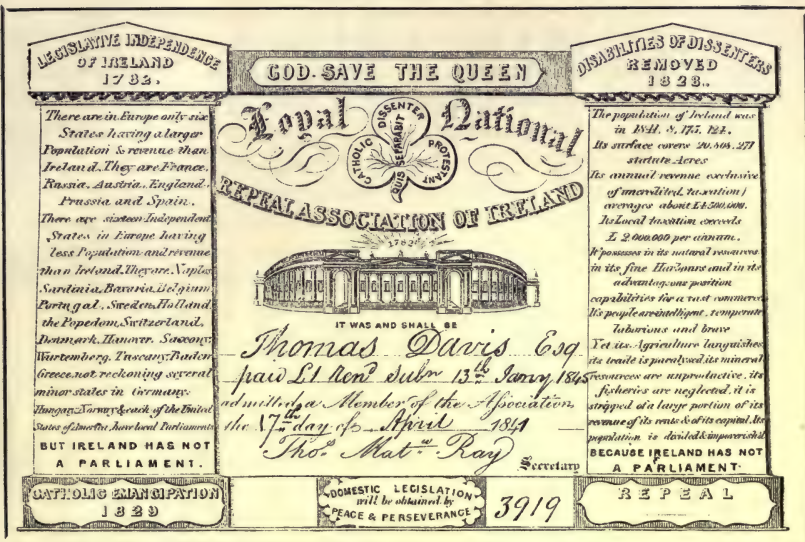 LEGISLATIVE INDEPENDENCE
OF IRELAND
1782.
There are in Europe only six
States having a larger
Population & revenue than
Ireland. They are France,
Russia, Austria, England,
Prussia and Spain.
There are sixteen Independent
States in Europe having
less Population and revenue
than Ireland. They are Naples
Sardinia, Bavaria, Belgium
Portugal, Sweden, Holland
the Popedom, Switzerland,
Denmark, Hanover, Saxony,
Wurtemberg, Tuscany, Baden
Greece, not reckoning several
minor states in Germany.
Hungary, Norway & each of the United
States of America have local Parliaments
BUT IRELAND HAS NOT
A PARLIAMENT.
CATHOLIC EMANCIPATION
1829
GOD SAVE THE QUEEN
Loyal National
CATHOLIC DISSENTER PROTESTANT
QUIS SEPARABIT
REPEAL ASSOCIATION OF IRELAND
1782
IT WAS AND SHALL BE
Thomas Davis Esq
paid £1 Rend Subn 13th Jany 1845
admitted a Member of the Association
the 17th day of April 1841
Thos. Matw Ray
Secretary
DOMESTIC LEGISLATION
will be obtained by
PEACE & PERSEVERANCE
3919
DISABILITIES OF DISSENTERS
REMOVED
1828.
The population of Ireland was
in 1841, 8,175,124.
Its surface covers 20,808,271
statute Acres
Its annual revenue exclusive
of uncredited taxation)
averages about £4500,000.
Its Local taxation exceeds
£ 2,000,000 per annum.
It possesses in its natural resources
in its fine Harbours and in its
advantageous position
capabilities for a vast commerce
Its people are intelligent, temperate
laborious and brave
Yet its Agriculture languishes
its trade is paralysed its mineral
resources are unproductive, its
fisheries are neglected, it is
stripped of a large portion of its
revenue of its rents & of its capital. Its
population is divided & impoverished
BECAUSE IRELAND HAS NOT
A PARLIAMENT.
REPEAL